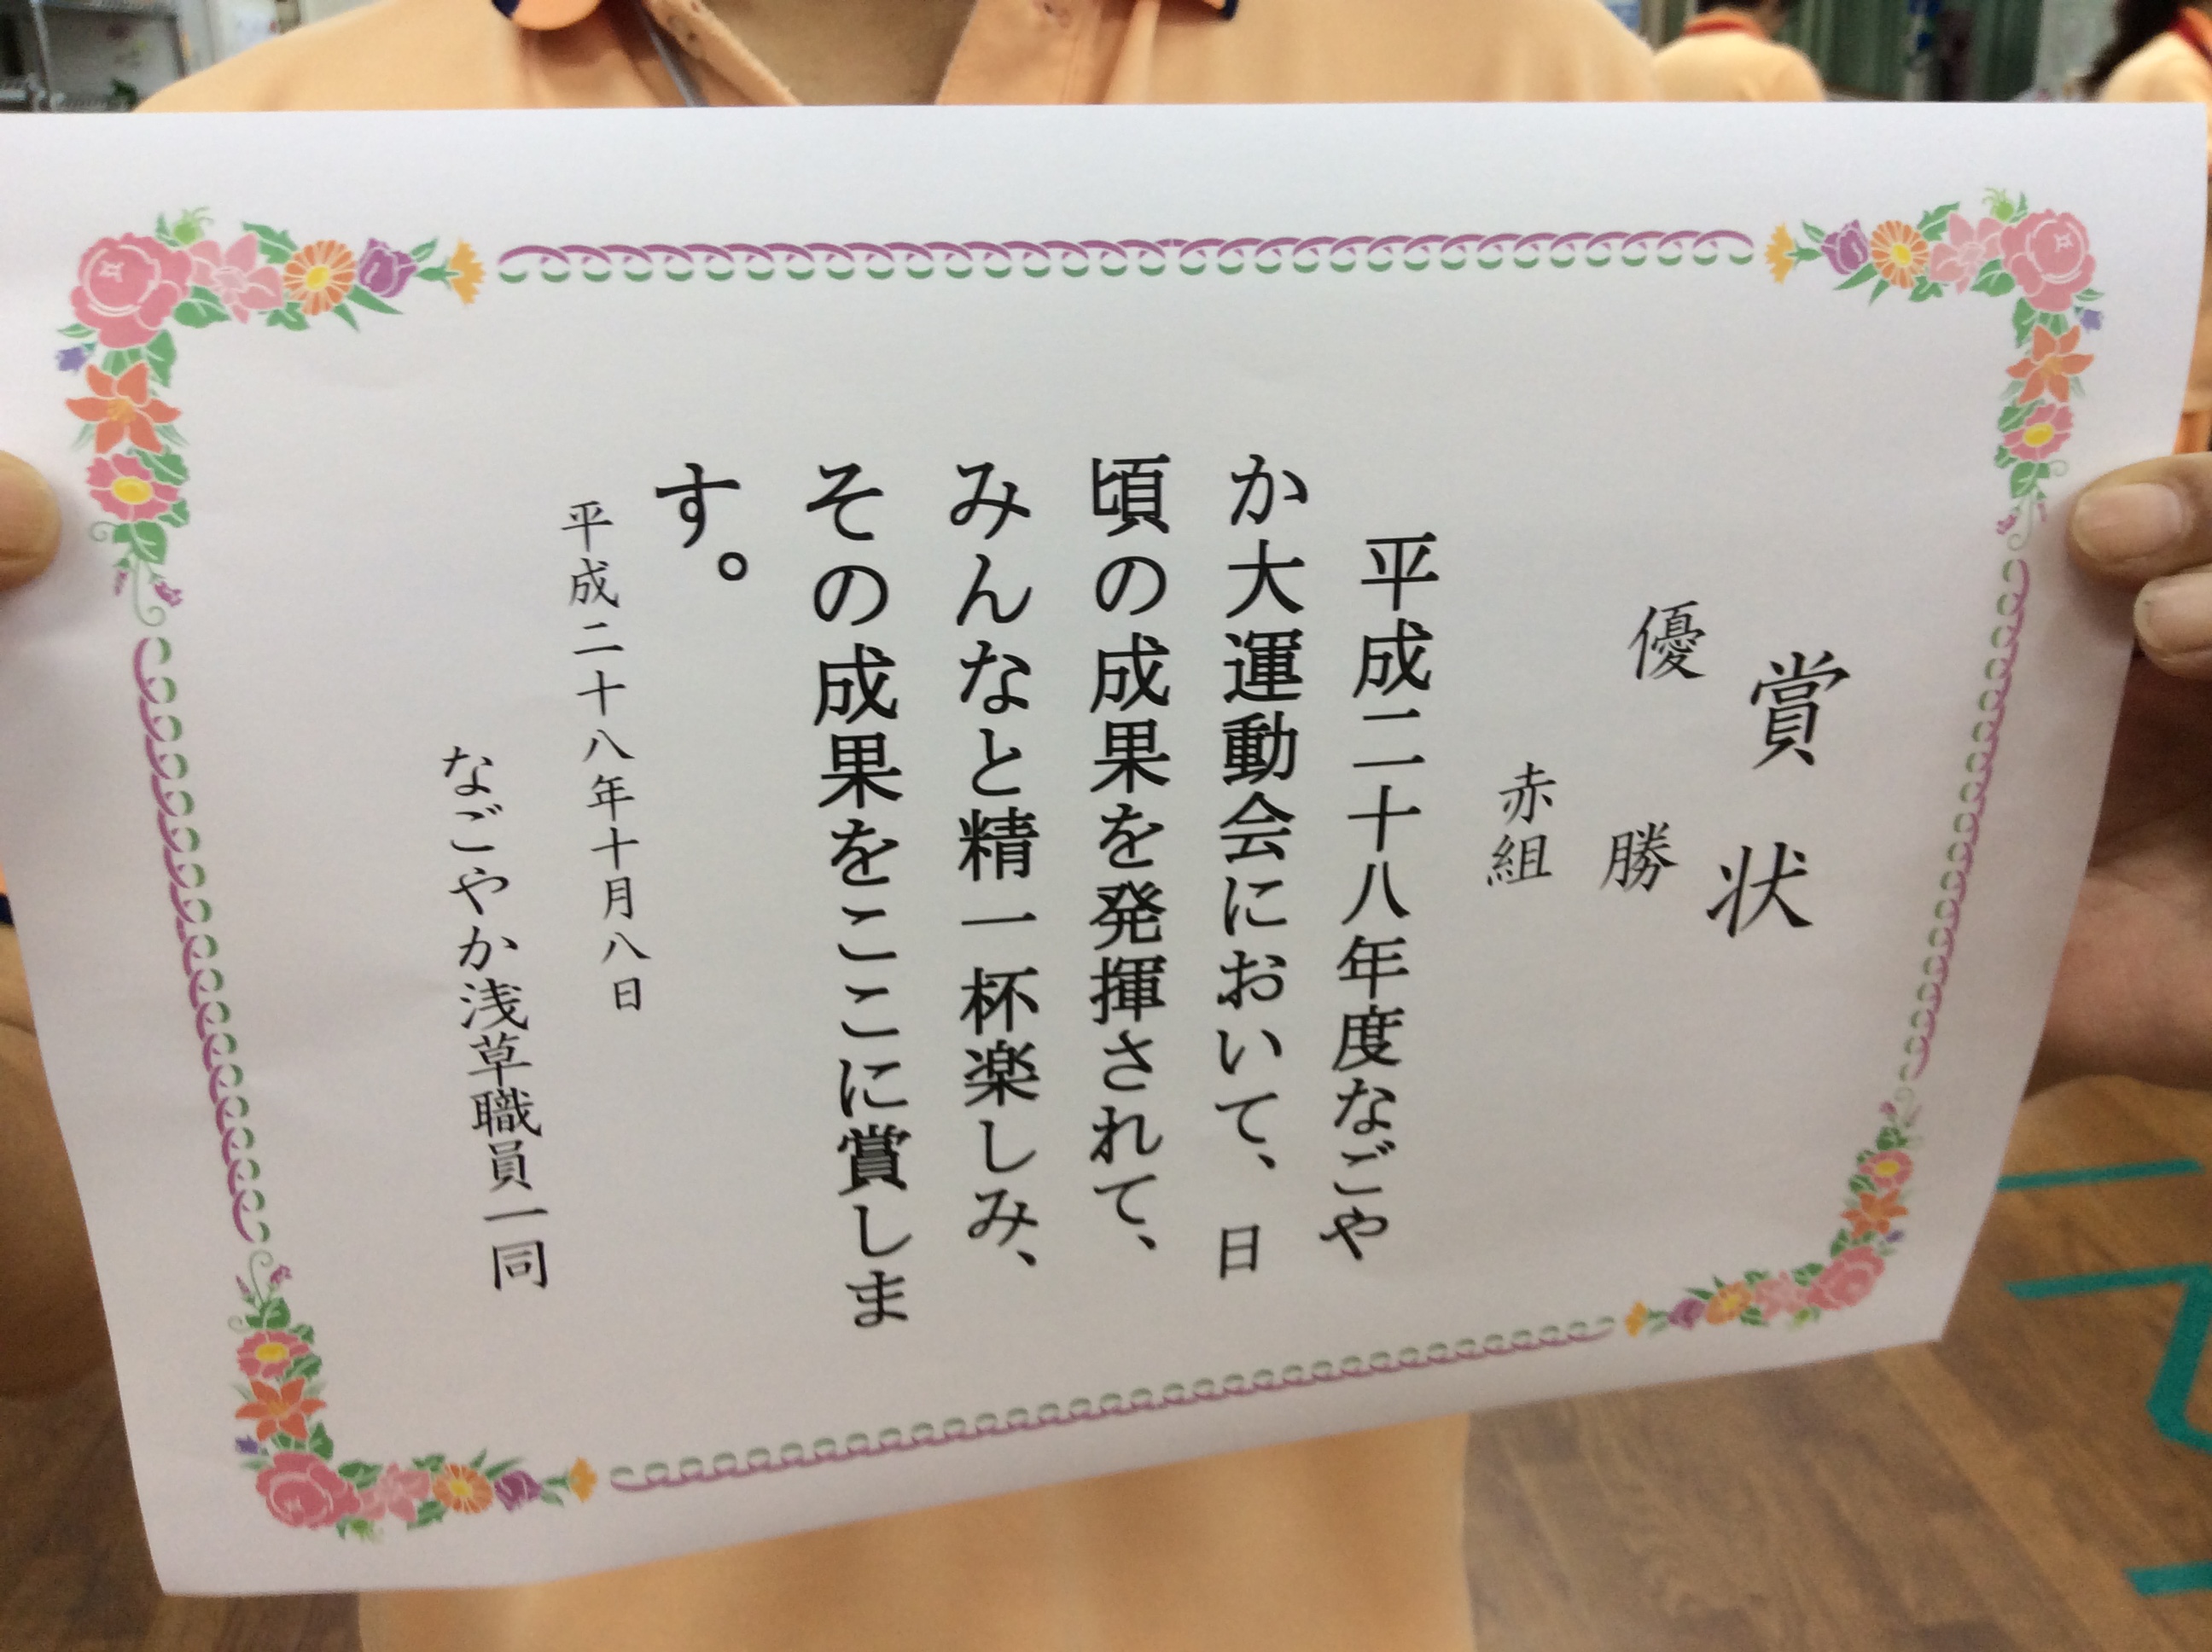 賞状
優勝
赤組
平成二十八年度なごや
か大運動会において、日
頃の成果を発揮されて、
みんなと精一杯楽しみ、
その成果をここに賞しま
す。
平成二十八年十月八日
なごやか浅草職員一同